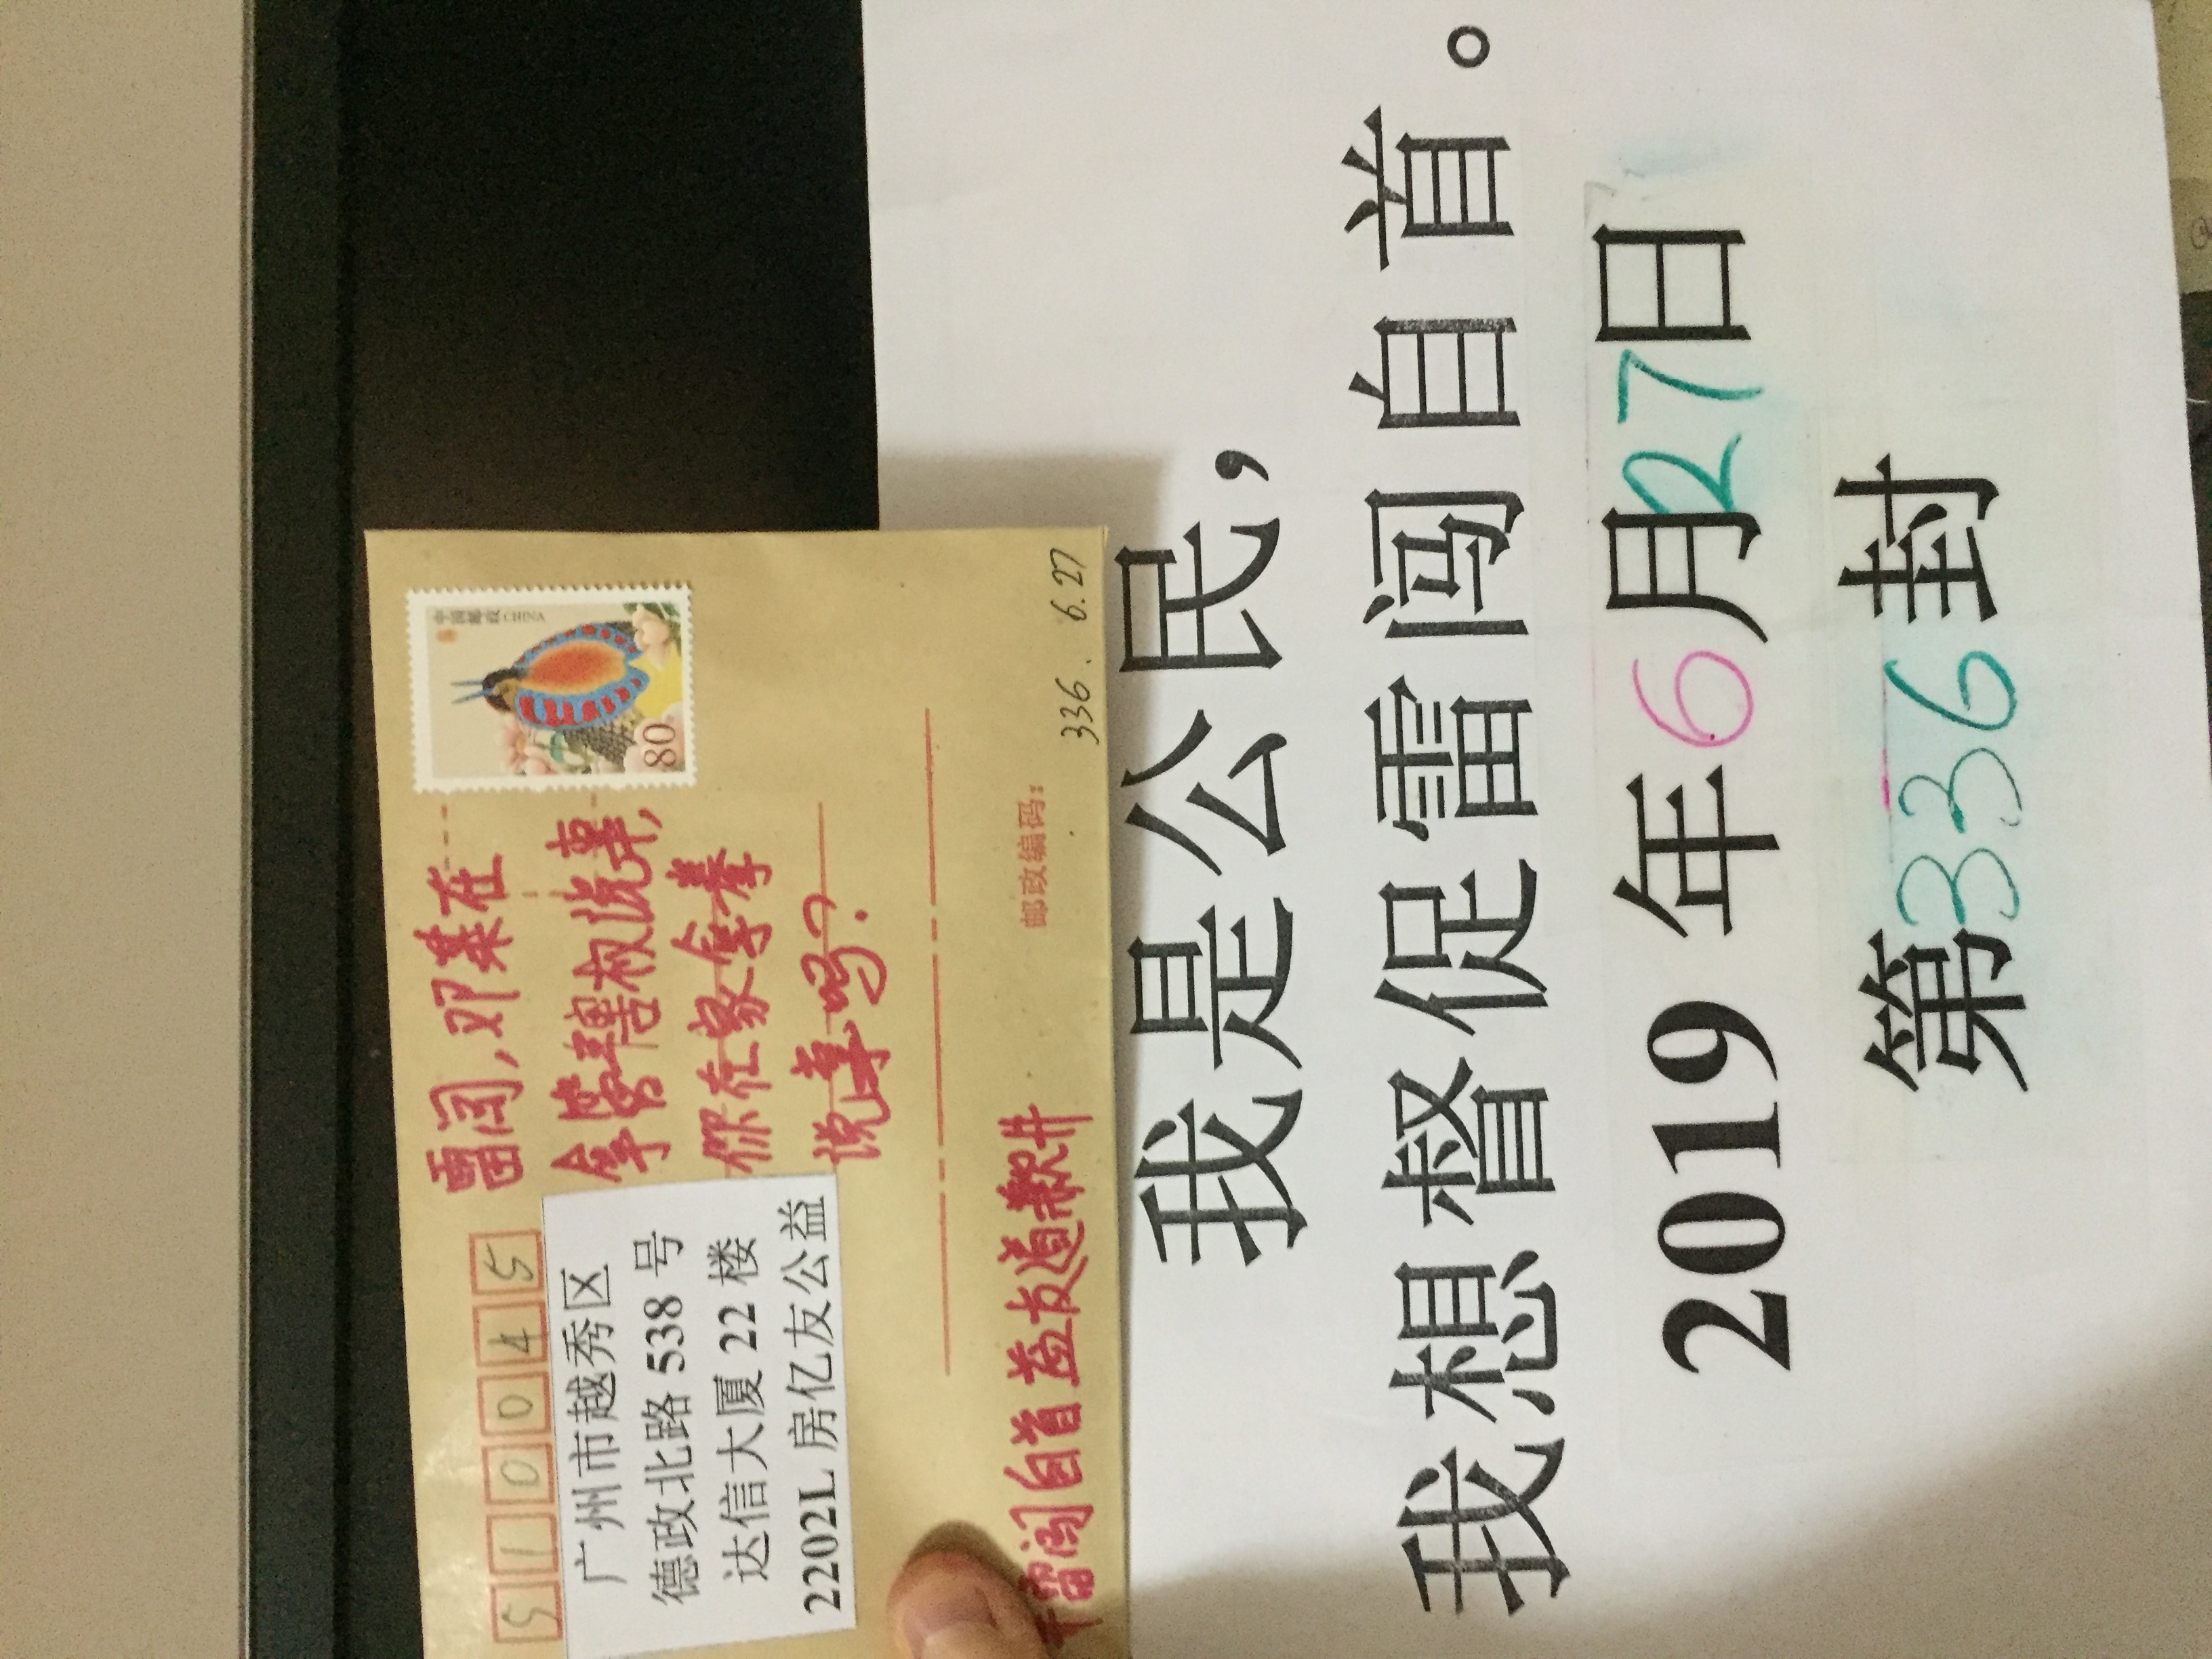 510045
广州市越秀区
德政北路 538 号
达信大厦 22 楼
2202L 房亿友公益
雷闯，邓某在
拿管辖权说事，
你在家拿拳
说事吗？
中国邮政 CHINA
80
雷闯自首 益友道歉
邮政编码：
336. 6.27
我是公民，
我想督促雷闯自首。
2019 年 6 月 27 日
第 336 封